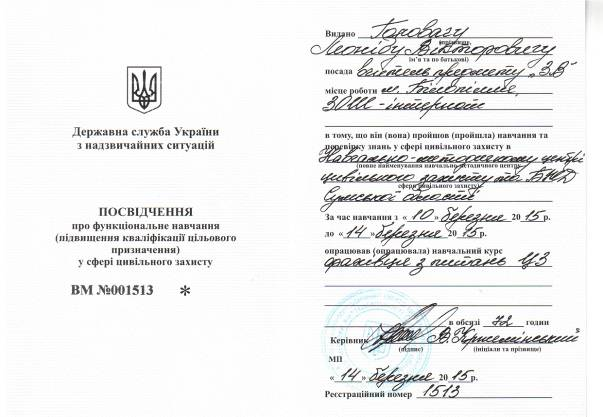 Державна служба України
з надзвичайних ситуацій
ПОСВІДЧЕННЯ
про функціональне навчання
(підвищення кваліфікації цільового
призначення)
у сфері цивільного захисту
ВМ №001513 *
Видано Головачу
(прізвище,
Леоніду Вікторовичу
ім'я та по батькові)
посада вчитель предмету „ЗВ"
місце роботи м. Білопілля,
ЗОШ - інтернат
в тому, що він (вона) пройшов (пройшла) навчання та
перевірку знань у сфері цивільного захисту в
Навчально-методичному центрі
(повне найменування навчально-методичного центру
цивільного захисту та БЖД
сфери цивільного захисту)
Сумської області
За час навчання з « 10 » березня 20 15 р.
до « 14 » березня 20 15 р.
опрацював (опрацювала) навчальний курс
фахівця з питань ЦЗ
в обсязі 72 годин
Керівник В.
(підпис) (ініціали та прізвище)
МП
« 14 » березня 20 15 р.
Реєстраційний номер 1513